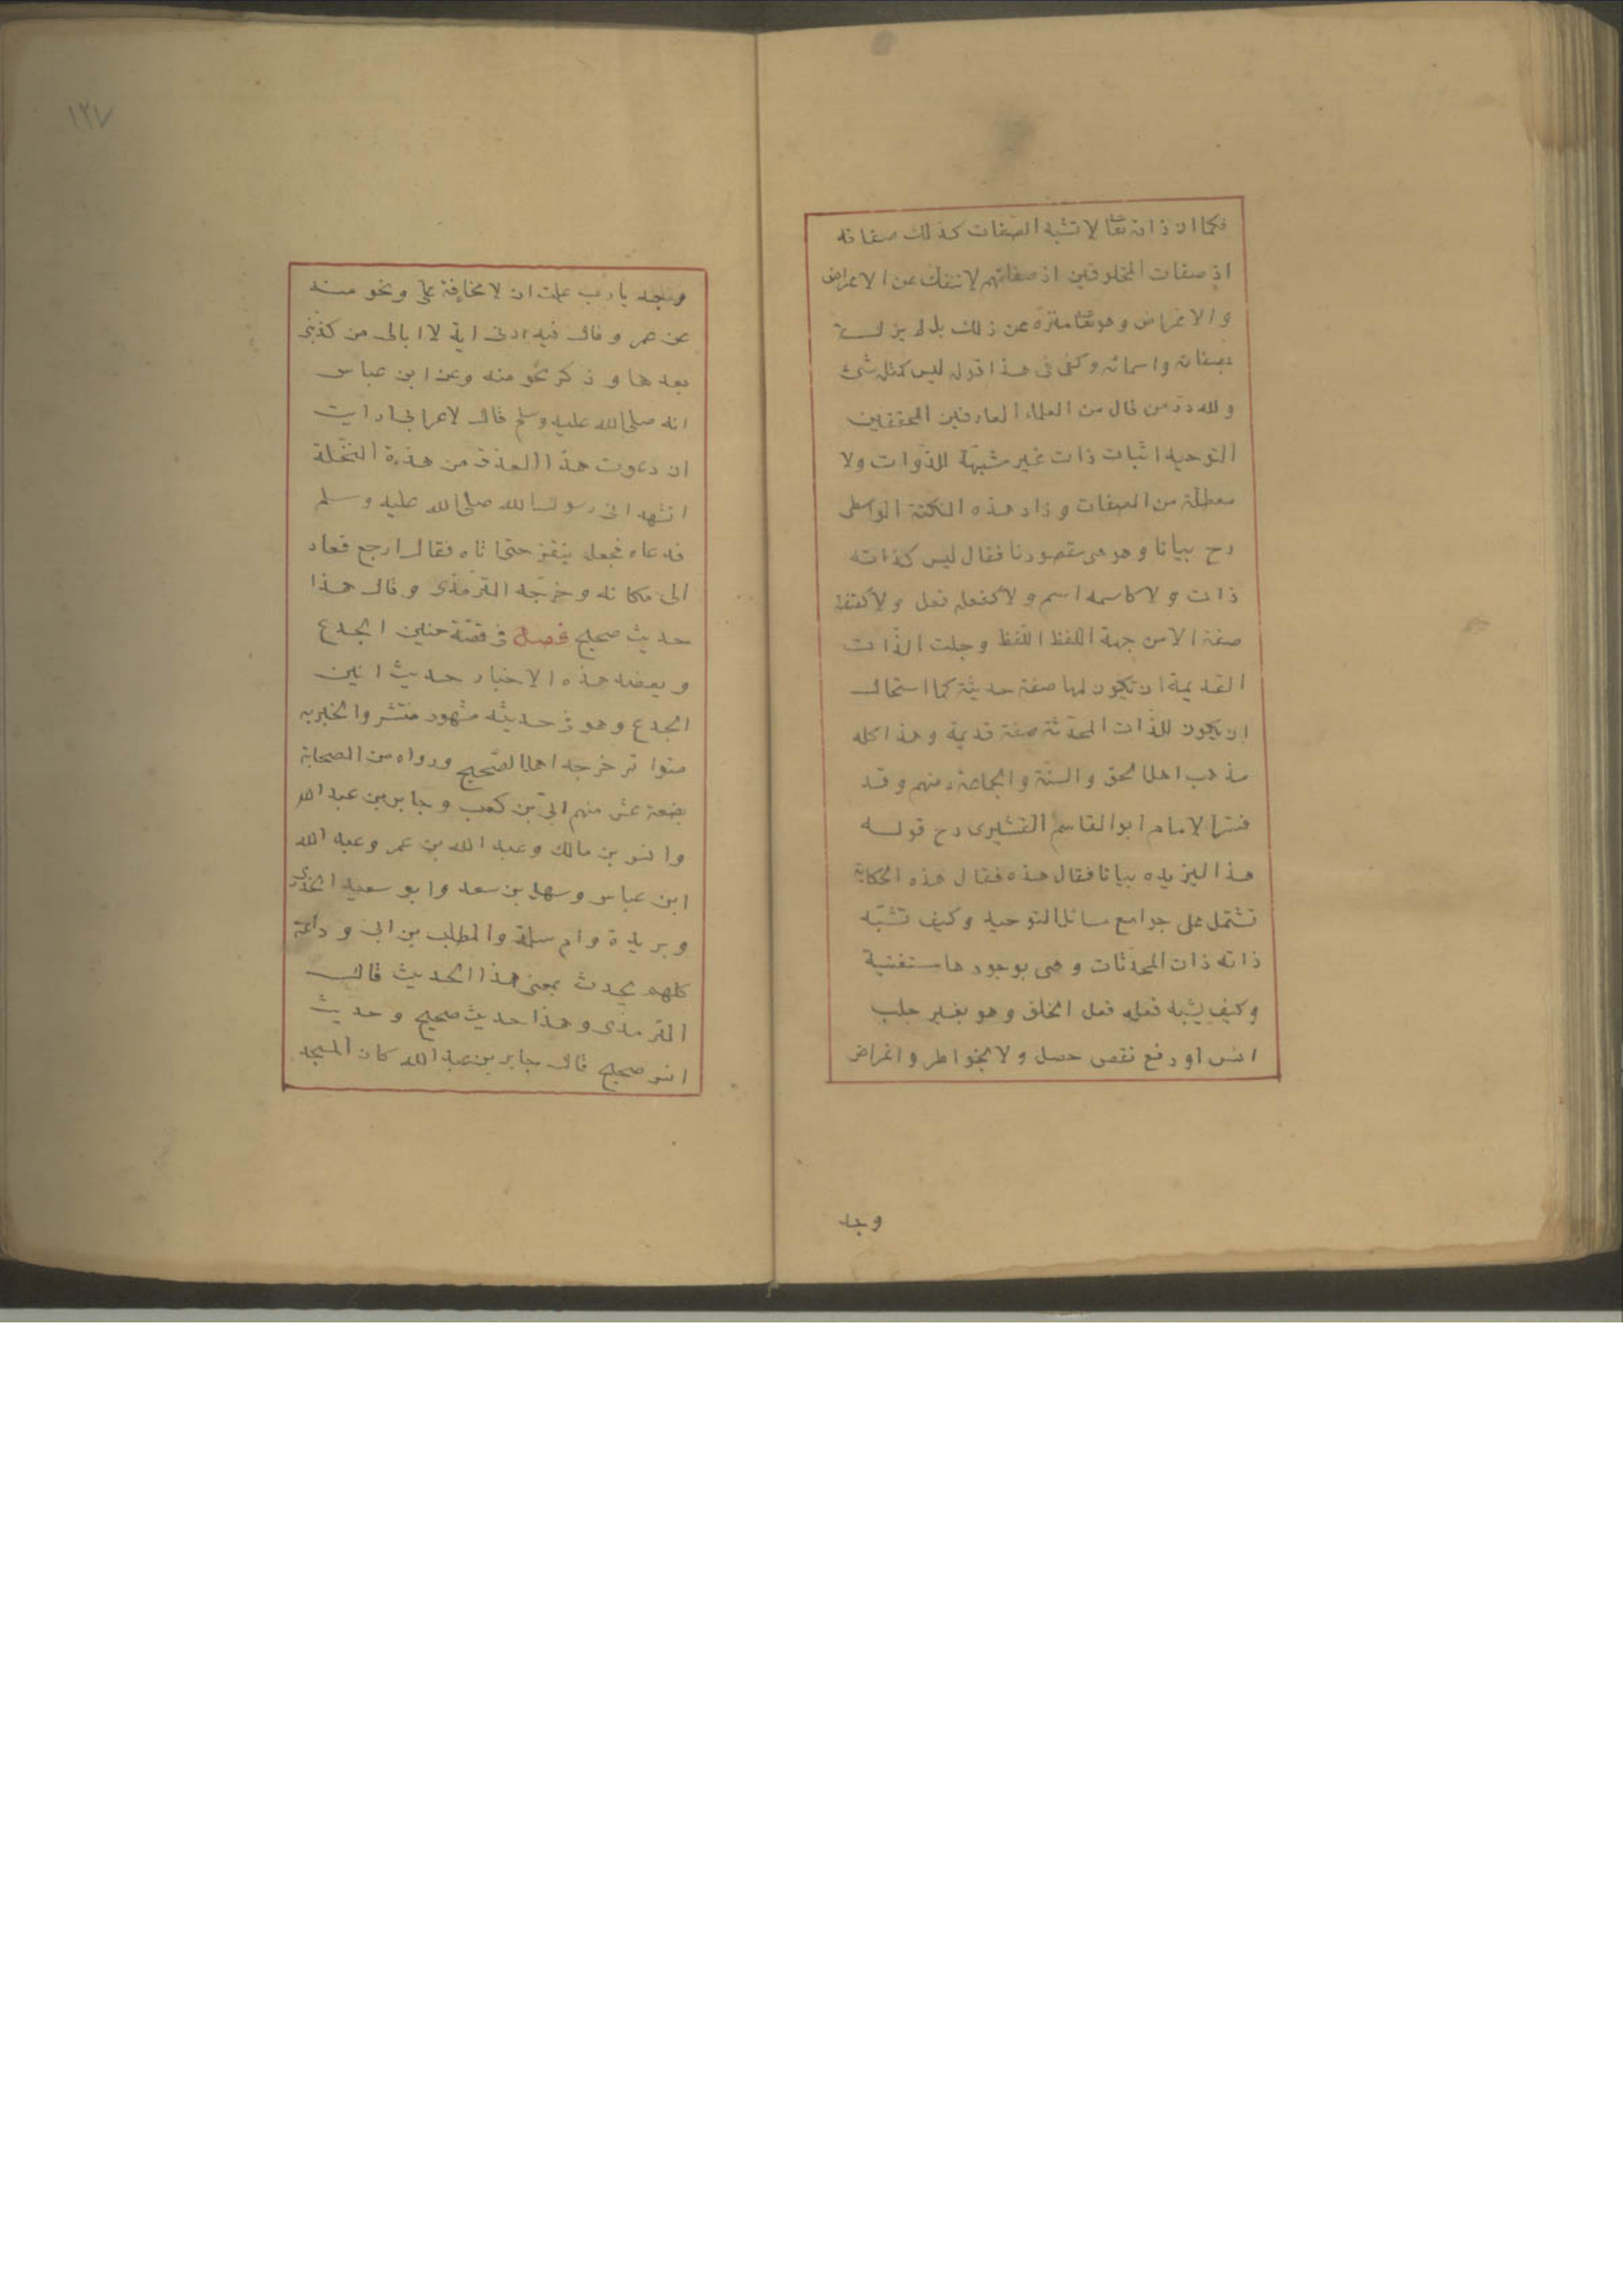 فكما ان ذاته تعا لا تشبه الصفات كذلك صفاته
اذ صفات المخلوقين اذ صفاتهم لا تنفك عن الاعراض
والاغراض وهو تعا منزه عن ذلك بل لم يزل
بصفاته واسمائه وكفى فى هذا قوله ليس كمثله شئ
ولله در من قال من العلماء العارفين المحققين
التوحيد اثبات ذات غير مشبهة للذوات ولا
معطلة من الصفات وزاد هذه النكتة الواسطى
رح بيانا وهو هى مقصودنا فقال ليس كذاته
ذات ولا كاسمه اسم ولا كفعله فعل ولا كصفته
صفة الا من جهة اللفظ اللفظ وجلت الذات
القديمة ان تكون لها صفة حديثة كما استحال
ان يكون للذات المحدثة صفة قديمة وهذا كله
مذهب اهل الحق والسنة والجماعة رضهم وقد
فسر الامام ابو القاسم القشيرى رح قوله
هذا ليزيده بيانا فقال هذه فقال هذه الحكاية
تشتمل على جوامع مسائل التوحيد وكيف تشبه
ذاته ذات المحدثات وهى بوجودها مستغنية
وكيف يشبه فعله فعل الخلق وهو بغير جلب
انس او دفع نقص حصل ولا بخواطر واغراض
وجد
١٢٧
وبجد يا رب علمت ان لا مخافة على ونحو منه
عن عمر وقال فيه ارنى اية لا ابالى من كذبنى
بعدها وذكر نحو منه وعن ابن عباس
انه صلى الله عليه وسلم قال لاعرابى ارايت
ان دعوت هذا العذق من هذه النخلة
اتشهد انى رسول الله صلى الله عليه وسلم
فدعاه فجعل ينقز حتى اتاه فقال ارجع فعاد
الى مكانه وخرجه الترمذى وقال هذا
حديث صحيح فصل فى قصة حنين الجذع
ويعضد هذه الاخبار حديث انين
الجدع وهو فى حديثه مشهور منتشر والخبر به
متواتر خرجه اهل الصحيح ورواه من الصحابة
بضعة عشر منهم ابى بن كعب وجابر بن عبد الله
وانس بن مالك وعبد الله بن عمر وعبد الله
ابن عباس وسهل بن سعد وابو سعيد الخدرى
وبريدة وام سلمة والمطلب بن ابى وداعة
كلهم يحدث بمعنى هذا الحديث قال
الترمذى وهذا حديث صحيح وحديث
انس صحيح قال جابر بن عبد الله كان المسجد